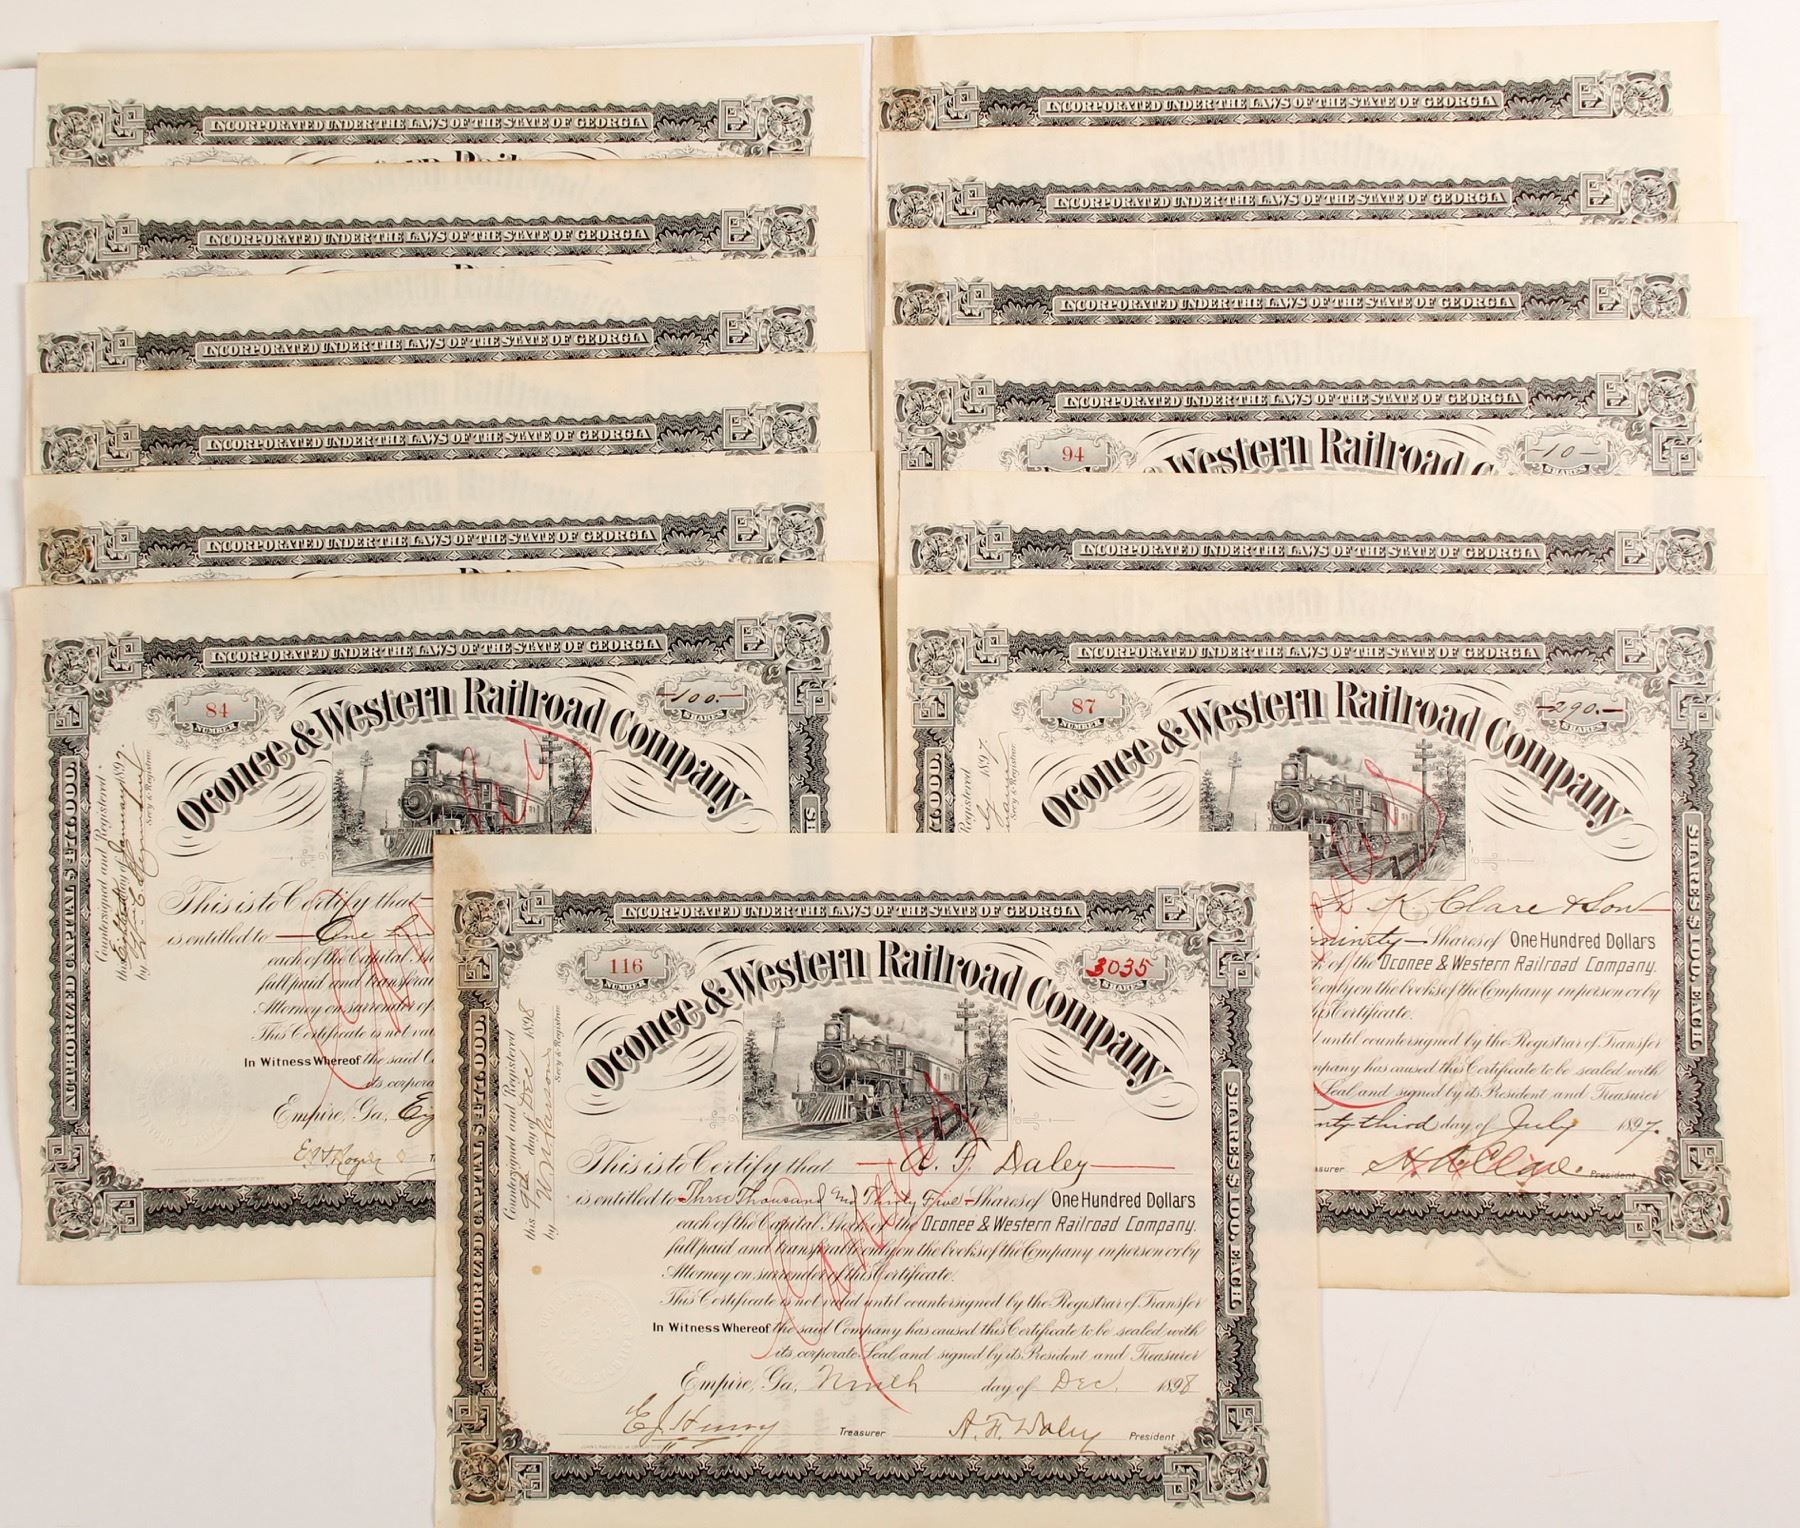 INCORPORATED UNDER THE LAWS OF THE STATE OF GEORGIA
INCORPORATED UNDER THE LAWS OF THE STATE OF GEORGIA
INCORPORATED UNDER THE LAWS OF THE STATE OF GEORGIA
INCORPORATED UNDER THE LAWS OF THE STATE OF GEORGIA
INCORPORATED UNDER THE LAWS OF THE STATE OF GEORGIA
INCORPORATED UNDER THE LAWS OF THE STATE OF GEORGIA
84
NUMBER
-100.-
SHARES
Oconee & Western Railroad Company
Countersigned and Registered
this Eighth day of January 1897
by
Secy & Registrar
AUTHORIZED CAPITAL $471,000.
This is to Certify that
is entitled to One
each of the Capital
full paid and transferab
Attorney on surrender of
This Certificate is not val
In Witness Whereof the said C
its corpora
Empire, Ga,
INCORPORATED UNDER THE LAWS OF THE STATE OF GEORGIA
INCORPORATED UNDER THE LAWS OF THE STATE OF GEORGIA
INCORPORATED UNDER THE LAWS OF THE STATE OF GEORGIA
INCORPORATED UNDER THE LAWS OF THE STATE OF GEORGIA
94
-10-
SHARES
Western Railroad
INCORPORATED UNDER THE LAWS OF THE STATE OF GEORGIA
INCORPORATED UNDER THE LAWS OF THE STATE OF GEORGIA
87
NUMBER
-290.-
SHARES
Oconee & Western Railroad Company
Registered
1897
Secy & Registrar
SHARES $100. EACH.
Clare & Son
ninety Shares of One Hundred Dollars
of the Oconee & Western Railroad Company.
only on the books of the Company in person or by
this Certificate.
until countersigned by the Registrar of Transfer
mpany has caused this Certificate to be sealed with
Seal and signed by its President and Treasurer
nty third day of July 1897.
asurer
President
INCORPORATED UNDER THE LAWS OF THE STATE OF GEORGIA
116
NUMBER
3035
SHARES
Oconee & Western Railroad Company
Countersigned and Registered
this 9th day of Dec 1898
by
Secy & Registrar
AUTHORIZED CAPITAL $471,000.
SHARES $100. EACH.
This is to Certify that A. F. Daley
is entitled to Three Thousand and Thirty Five Shares of One Hundred Dollars
each of the Capital Stock of the Oconee & Western Railroad Company.
full paid and transferable only on the books of the Company in person or by
Attorney on surrender of this Certificate.
This Certificate is not valid until countersigned by the Registrar of Transfer
In Witness Whereof the said Company has caused this Certificate to be sealed with
its corporate Seal and signed by its President and Treasurer
Empire, Ga, Ninth day of Dec. 1898
E J Henry Treasurer A. F. Daley President
Cancelled